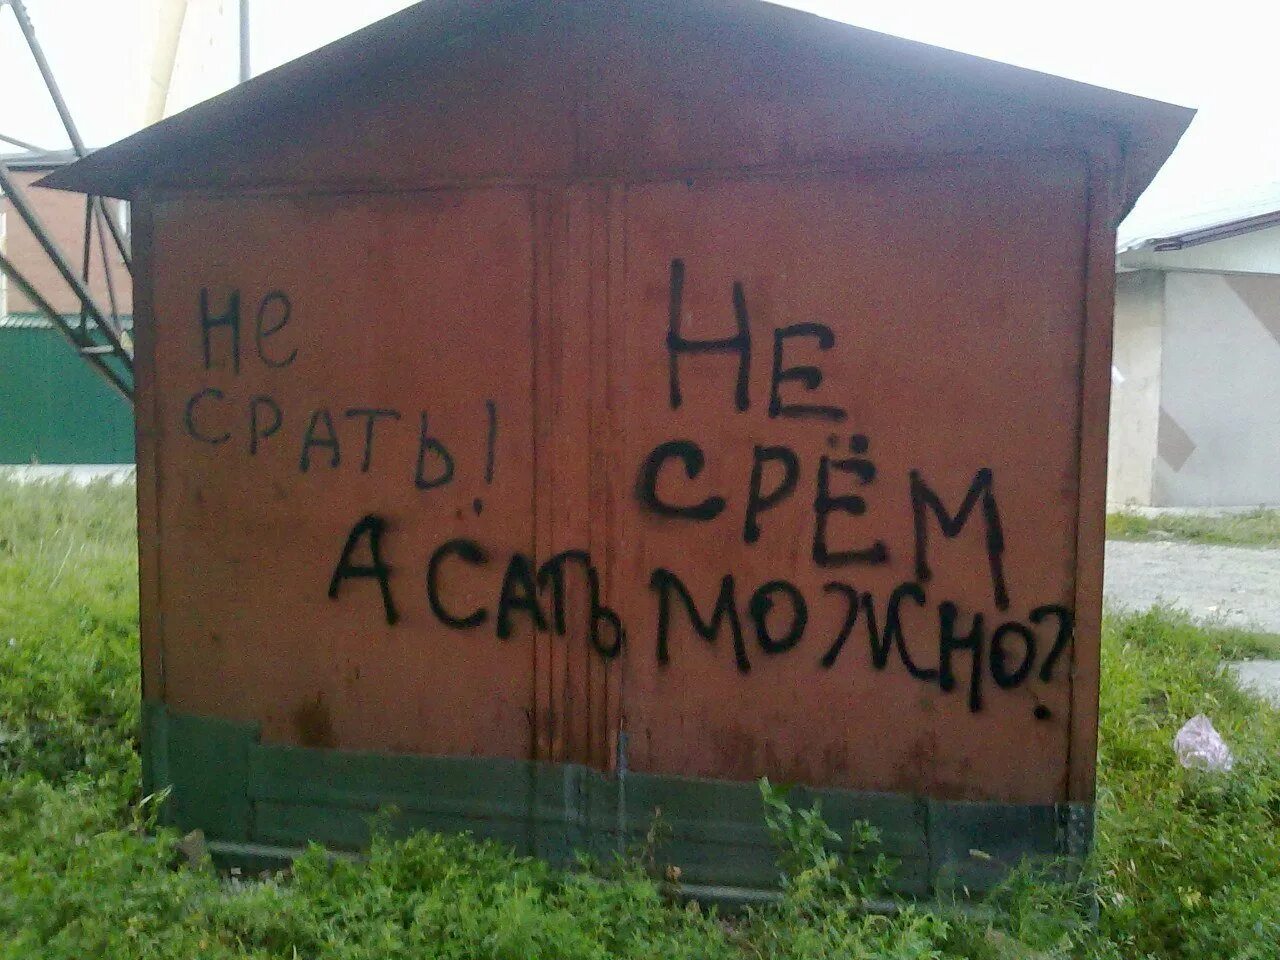 Не
СРАТЬ!
НЕ
СРЁМ
А САТЬ МОЖНО?